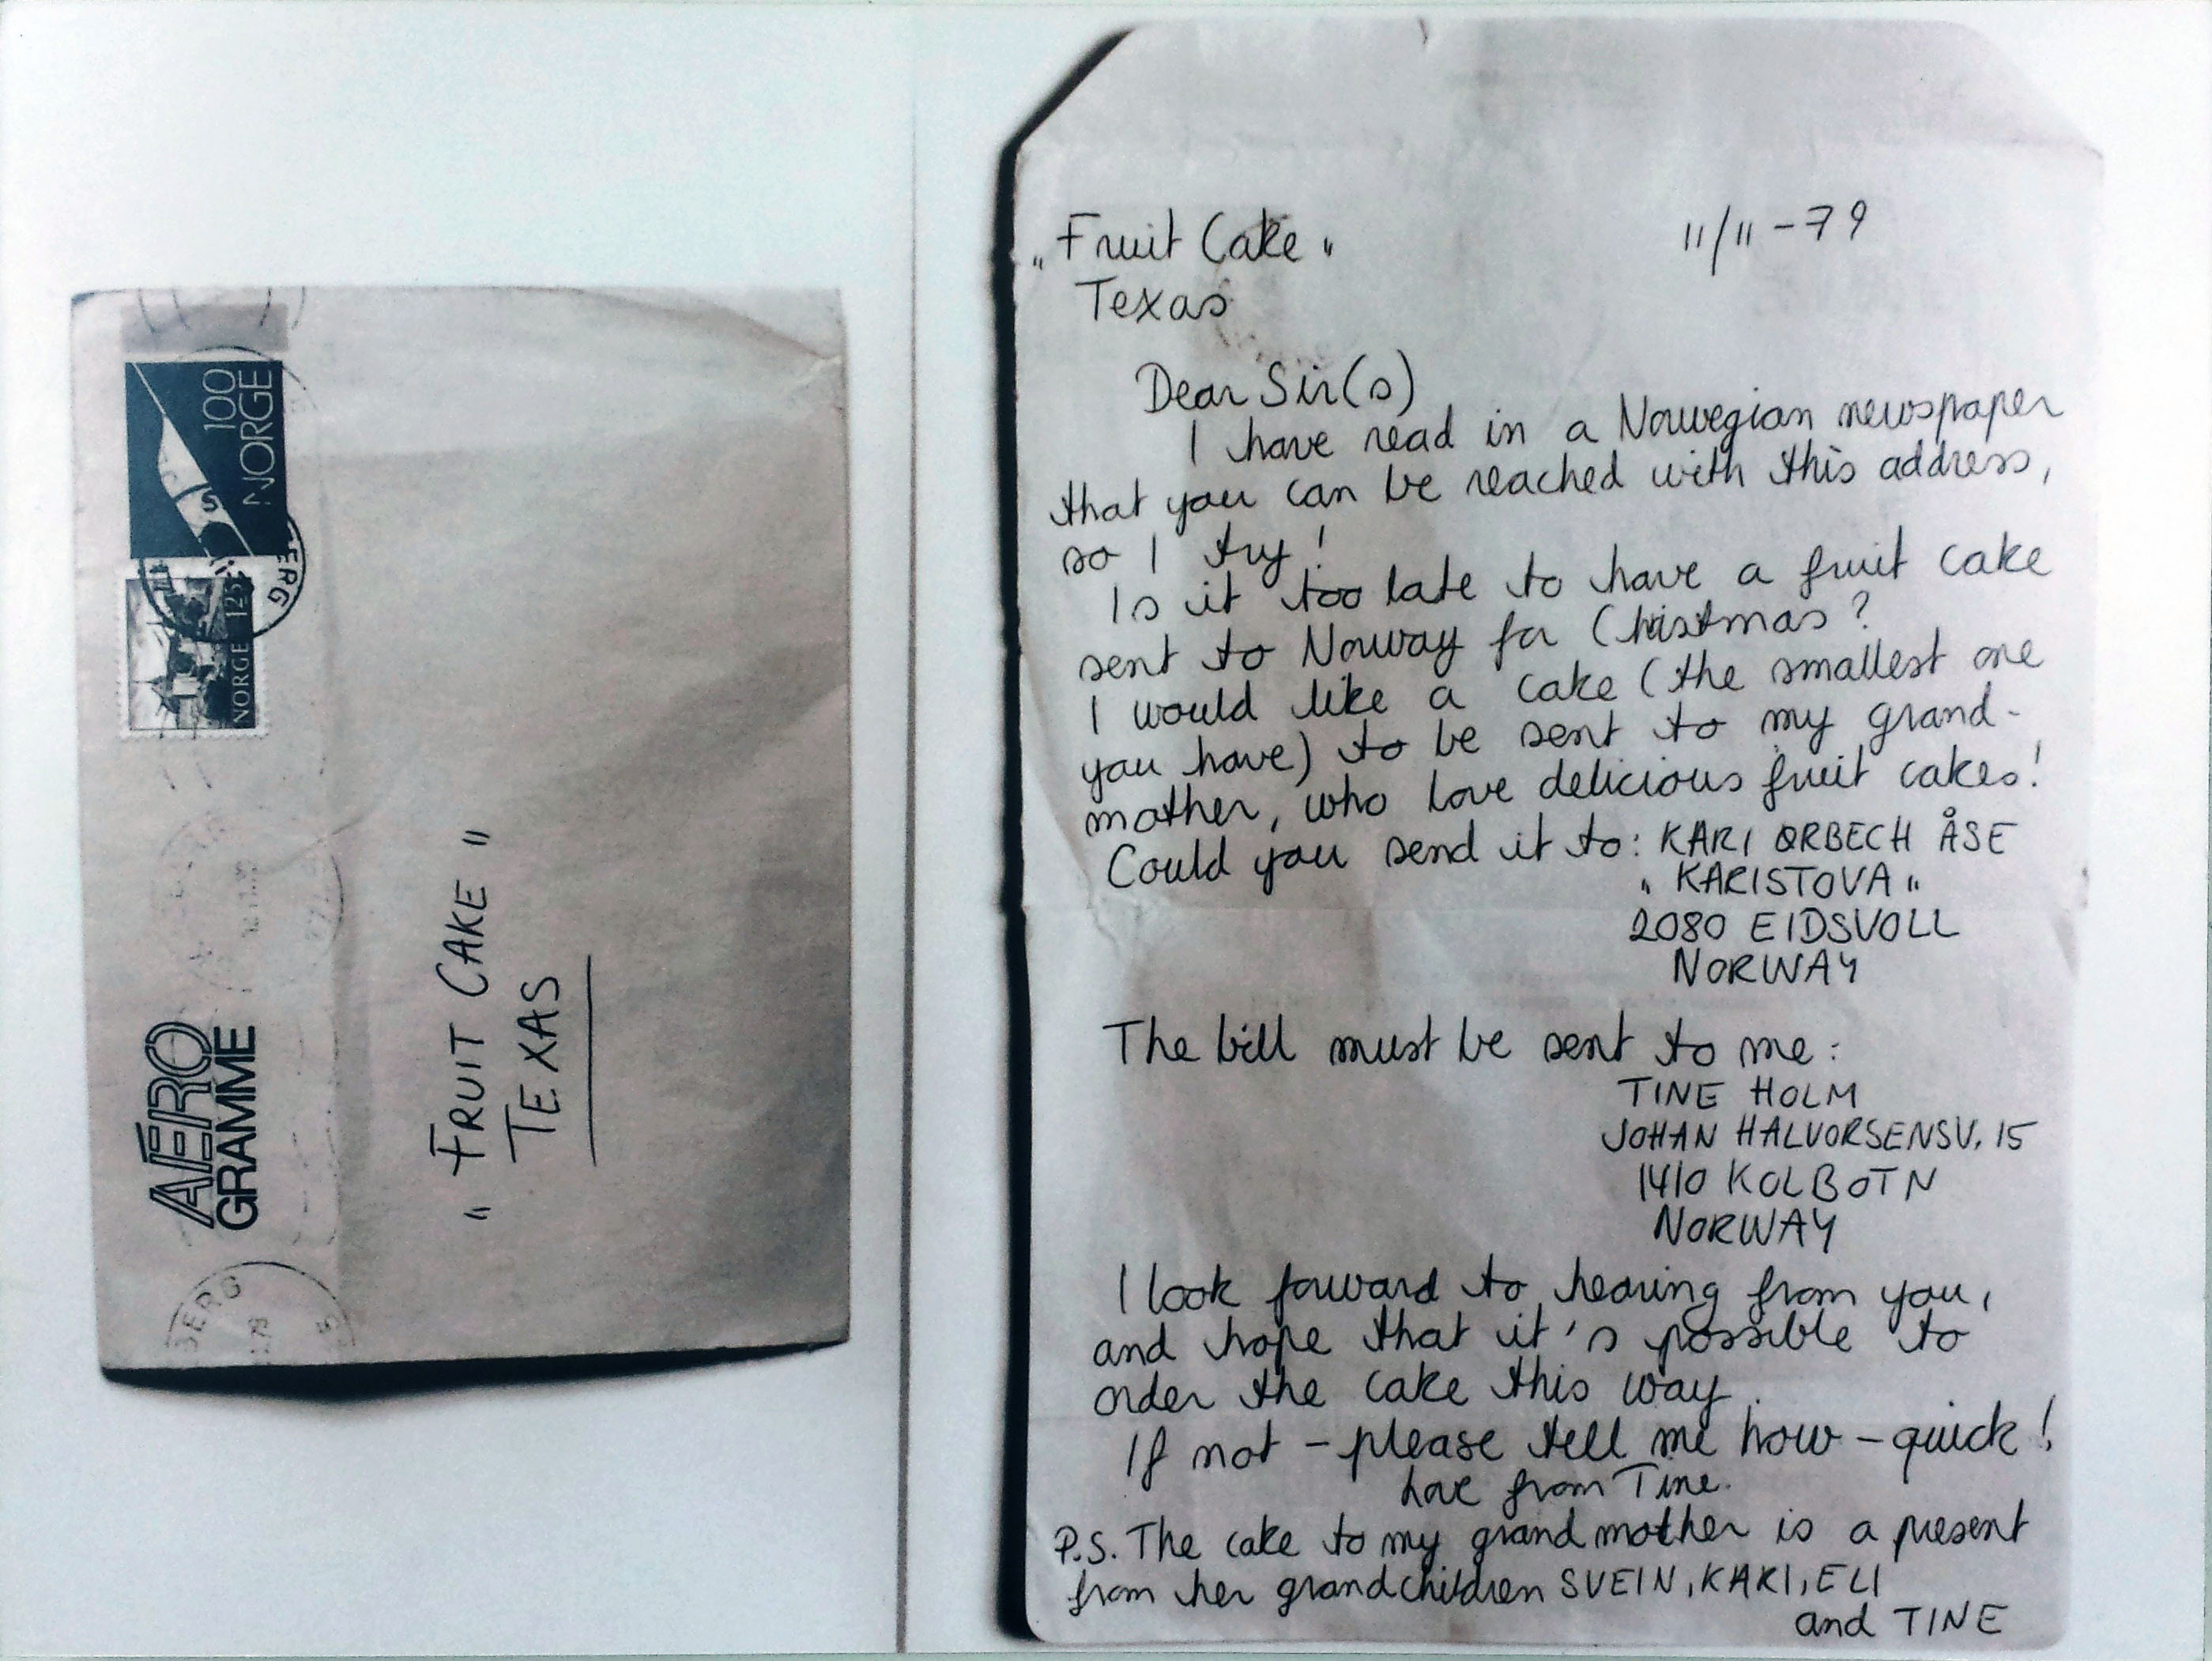 100
NORGE
NORGE 125
ERG
AERO
GRAMME
BERG
"FRUIT CAKE"
TEXAS
"Fruit Cake"
11/11-79
Texas
Dear Sir(s)
I have read in a Norwegian newspaper
that you can be reached with this address,
so I try!
Is it too late to have a fruit cake
sent to Norway for Christmas?
I would like a cake (the smallest one
you have) to be sent to my grand-
mother, who love delicious fruit cakes!
Could you send it to: KARI ØRBECH ÅSE
"KARISTOVA"
2080 EIDSVOLL
NORWAY
The bill must be sent to me:
TINE HOLM
JOHAN HALVORSENSV. 15
1410 KOLBOTN
NORWAY
I look forward to hearing from you,
and hope that it's possible to
order the cake this way.
If not - please tell me how - quick!
Love from Tine.
P.S. The cake to my grandmother is a present
from her grandchildren SVEIN, KARI, ELI
and TINE